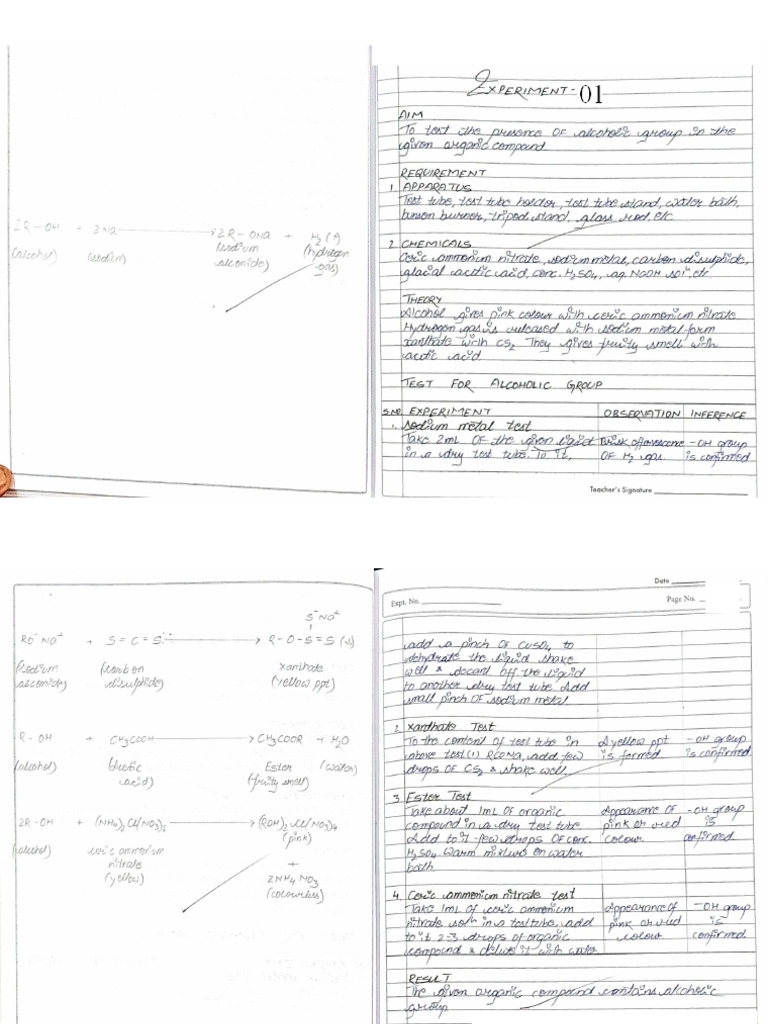 2R-OH + 2Na → 2R-ONa + H2(↑)
(alcohol) (sodium) (sodium (hydrogen
alconide) gas)
EXPERIMENT-01
AIM
To test the presence of alcoholic group in the
given organic compound
REQUIREMENT
1. APPARATUS
Test tube, test tube holder, test tube stand, water bath,
bunson burner, tripod stand, glass rod, etc.
2. CHEMICALS
Ceric ammonium nitrate, sodium metal, carbon disulphide,
glacial acetic acid, conc. H2SO4, aq. NaOH sol, etc
THEORY
Alcohol gives pink colour with ceric ammonium nitrate
Hydrogen gas is released with sodium metal form
xanthate with CS2 They gives fruity smell with
acetic acid
TEST FOR ALCOHOLIC GROUP
S.NO. EXPERIMENT OBSERVATION INFERENCE
1. Sodium metal test
Take 2mL of the given liquid Brisk effervescence -OH group
in a dry test tube. To it, of H2 gas. is confirmed
Teacher's Signature
S-Na+
RO-Na+ + S=C=S → R-O-S=S (↓)
(sodium (carbon xanthate
alconide) disulphide) (yellow ppt)
R-OH + CH3COOH → CH3COOR + H2O
(alcohol) acid) Ester (water)
(fruity smell)
2R-OH + (NH4)2Ce(NO3)6 → (ROH)2Ce(NO3)4
(alcohol) ceric ammonium (pink)
nitrate +
(yellow) 2NH4NO3
(colourless)
Date
Expt. No. Page No.
add a pinch of CuSO4 to
dehydrate the liquid shake
well & decant off the liquid
to another dry test tube Add
small pinch of sodium metal
2. Xanthate Test
To the content of test tube in A yellow ppt -OH group
above test (1) RCONa, add few is formed is confirmed.
drops of CS2 & shake well.
3. Ester Test
Take about 1mL of organic Appearance of -OH group
compound in a dry test tube pink or red is
Add to it few drops of conc. colour. confirmed.
H2SO4. Warm mixture on water
bath.
4. Ceric ammonium nitrate test
Take 1mL of ceric ammonium Appearance of -OH group
nitrate soln in a test tube, add pink or red is
to it 2-3 drops of organic colour confirmed.
compound & dilute it with water.
RESULT
The given organic compound contains alcoholic
group